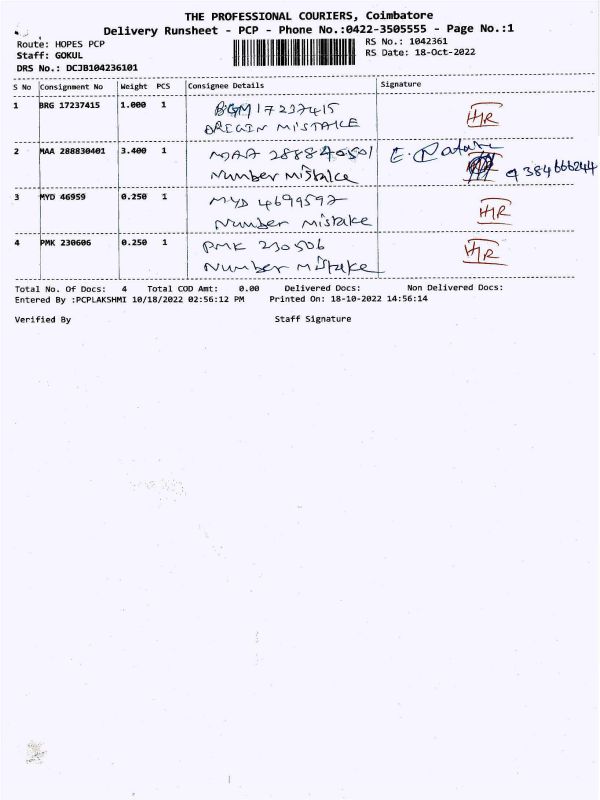 THE PROFESSIONAL COURIERS, Coimbatore
Delivery Runsheet - PCP - Phone No.:0422-3505555 - Page No.:1
Route: HOPES PCP
RS No.: 1042361
Staff: GOKUL
RS Date: 18-Oct-2022
DRS No.: DCJB104236101
S No Consignment No Weight PCS Consignee Details Signature
1 BRG 17237415 1.000 1 BGM 17237415
ORIGIN MISTAKE HR
2 MAA 288830401 3.400 1 MAA 288840501 E.
Number Mistake 9384666244
3 MYD 46959 0.250 1 MYD 4699597
Number mistake HR
4 PMK 230606 0.250 1 PMK 230506
Number Mistake HR
Total No. Of Docs: 4 Total COD Amt: 0.00 Delivered Docs: Non Delivered Docs:
Entered By :PCPLAKSHMI 10/18/2022 02:56:12 PM Printed On: 18-10-2022 14:56:14
Verified By Staff Signature